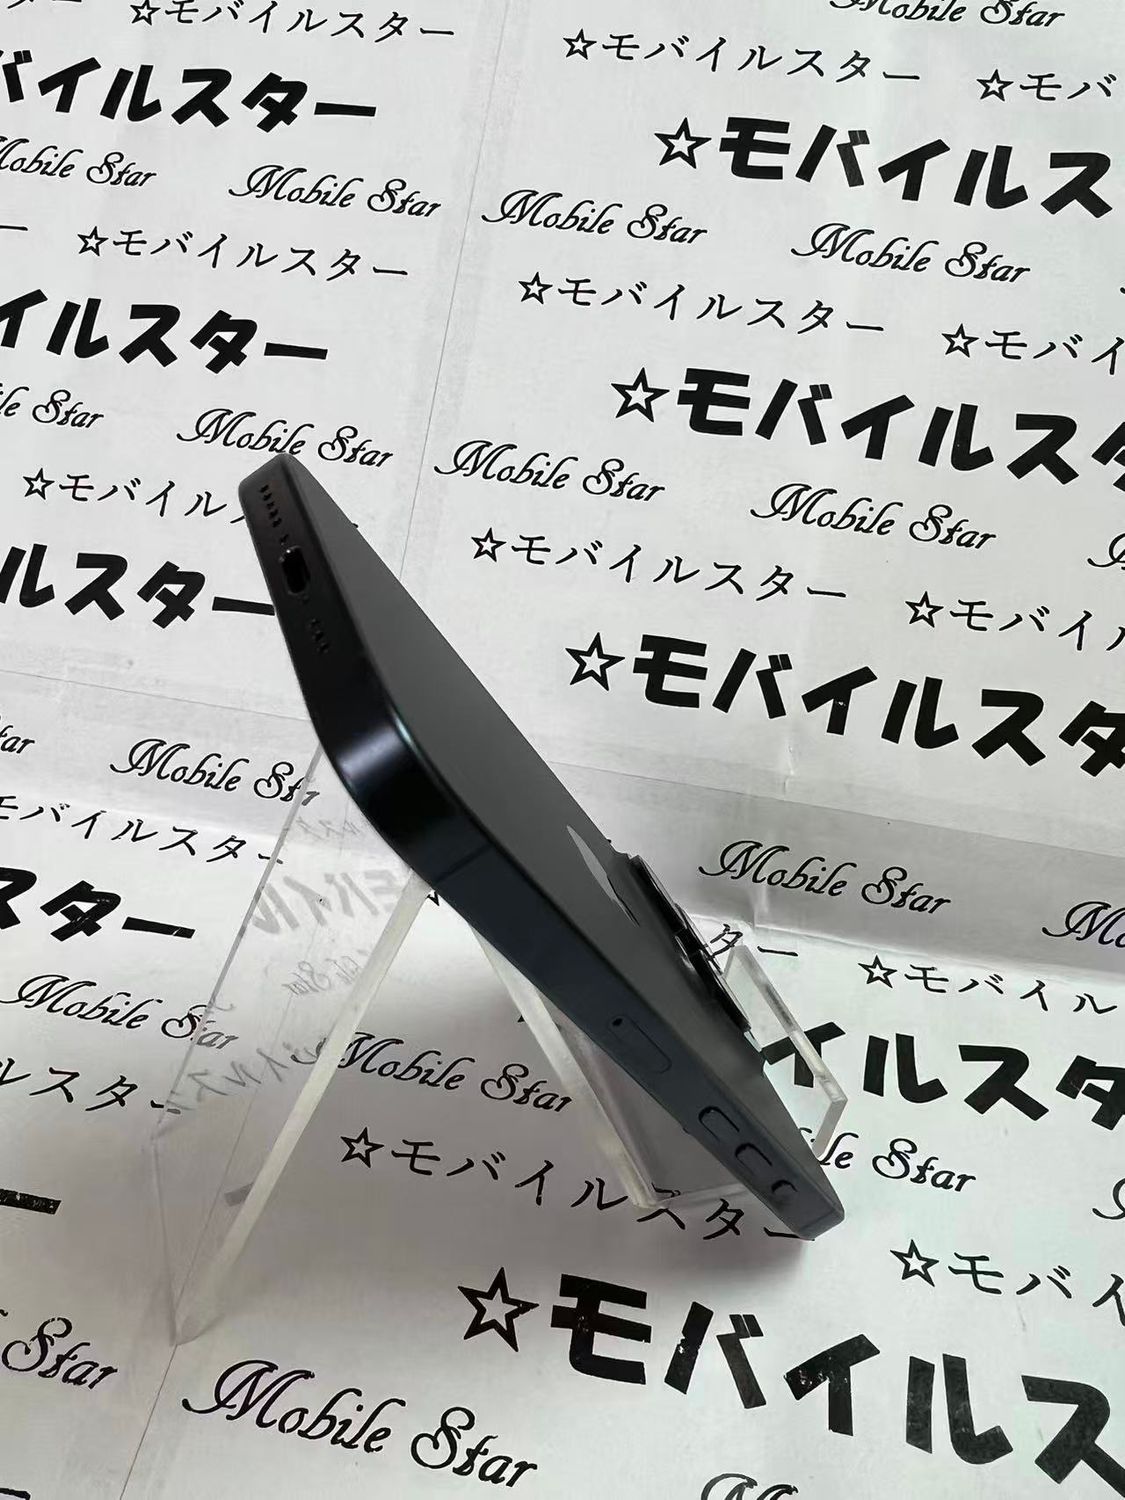 ☆モバイルスター
☆モバイルスター ☆モバ
バイルスター
☆モバイルス
Mobile Star Mobile Star
Mobile Star Mobile Star
☆モバイルスター
☆モバイルスター ☆モバイ
イルスター
☆モバイルスタ
Star Mobile Star
Mobile Star Mobile Star
☆モバイル
☆モバイルスター ☆モバイル
ルスター
☆モバイルスタ
Mobile Star
Mobile Star
モバイルスター
☆モバイル
スター
イルスタ
Mobile Star
Mobile Star
Star
ルスター
☆モバイルスター
☆モバイ
☆モバイルス
Star
Mobile Star